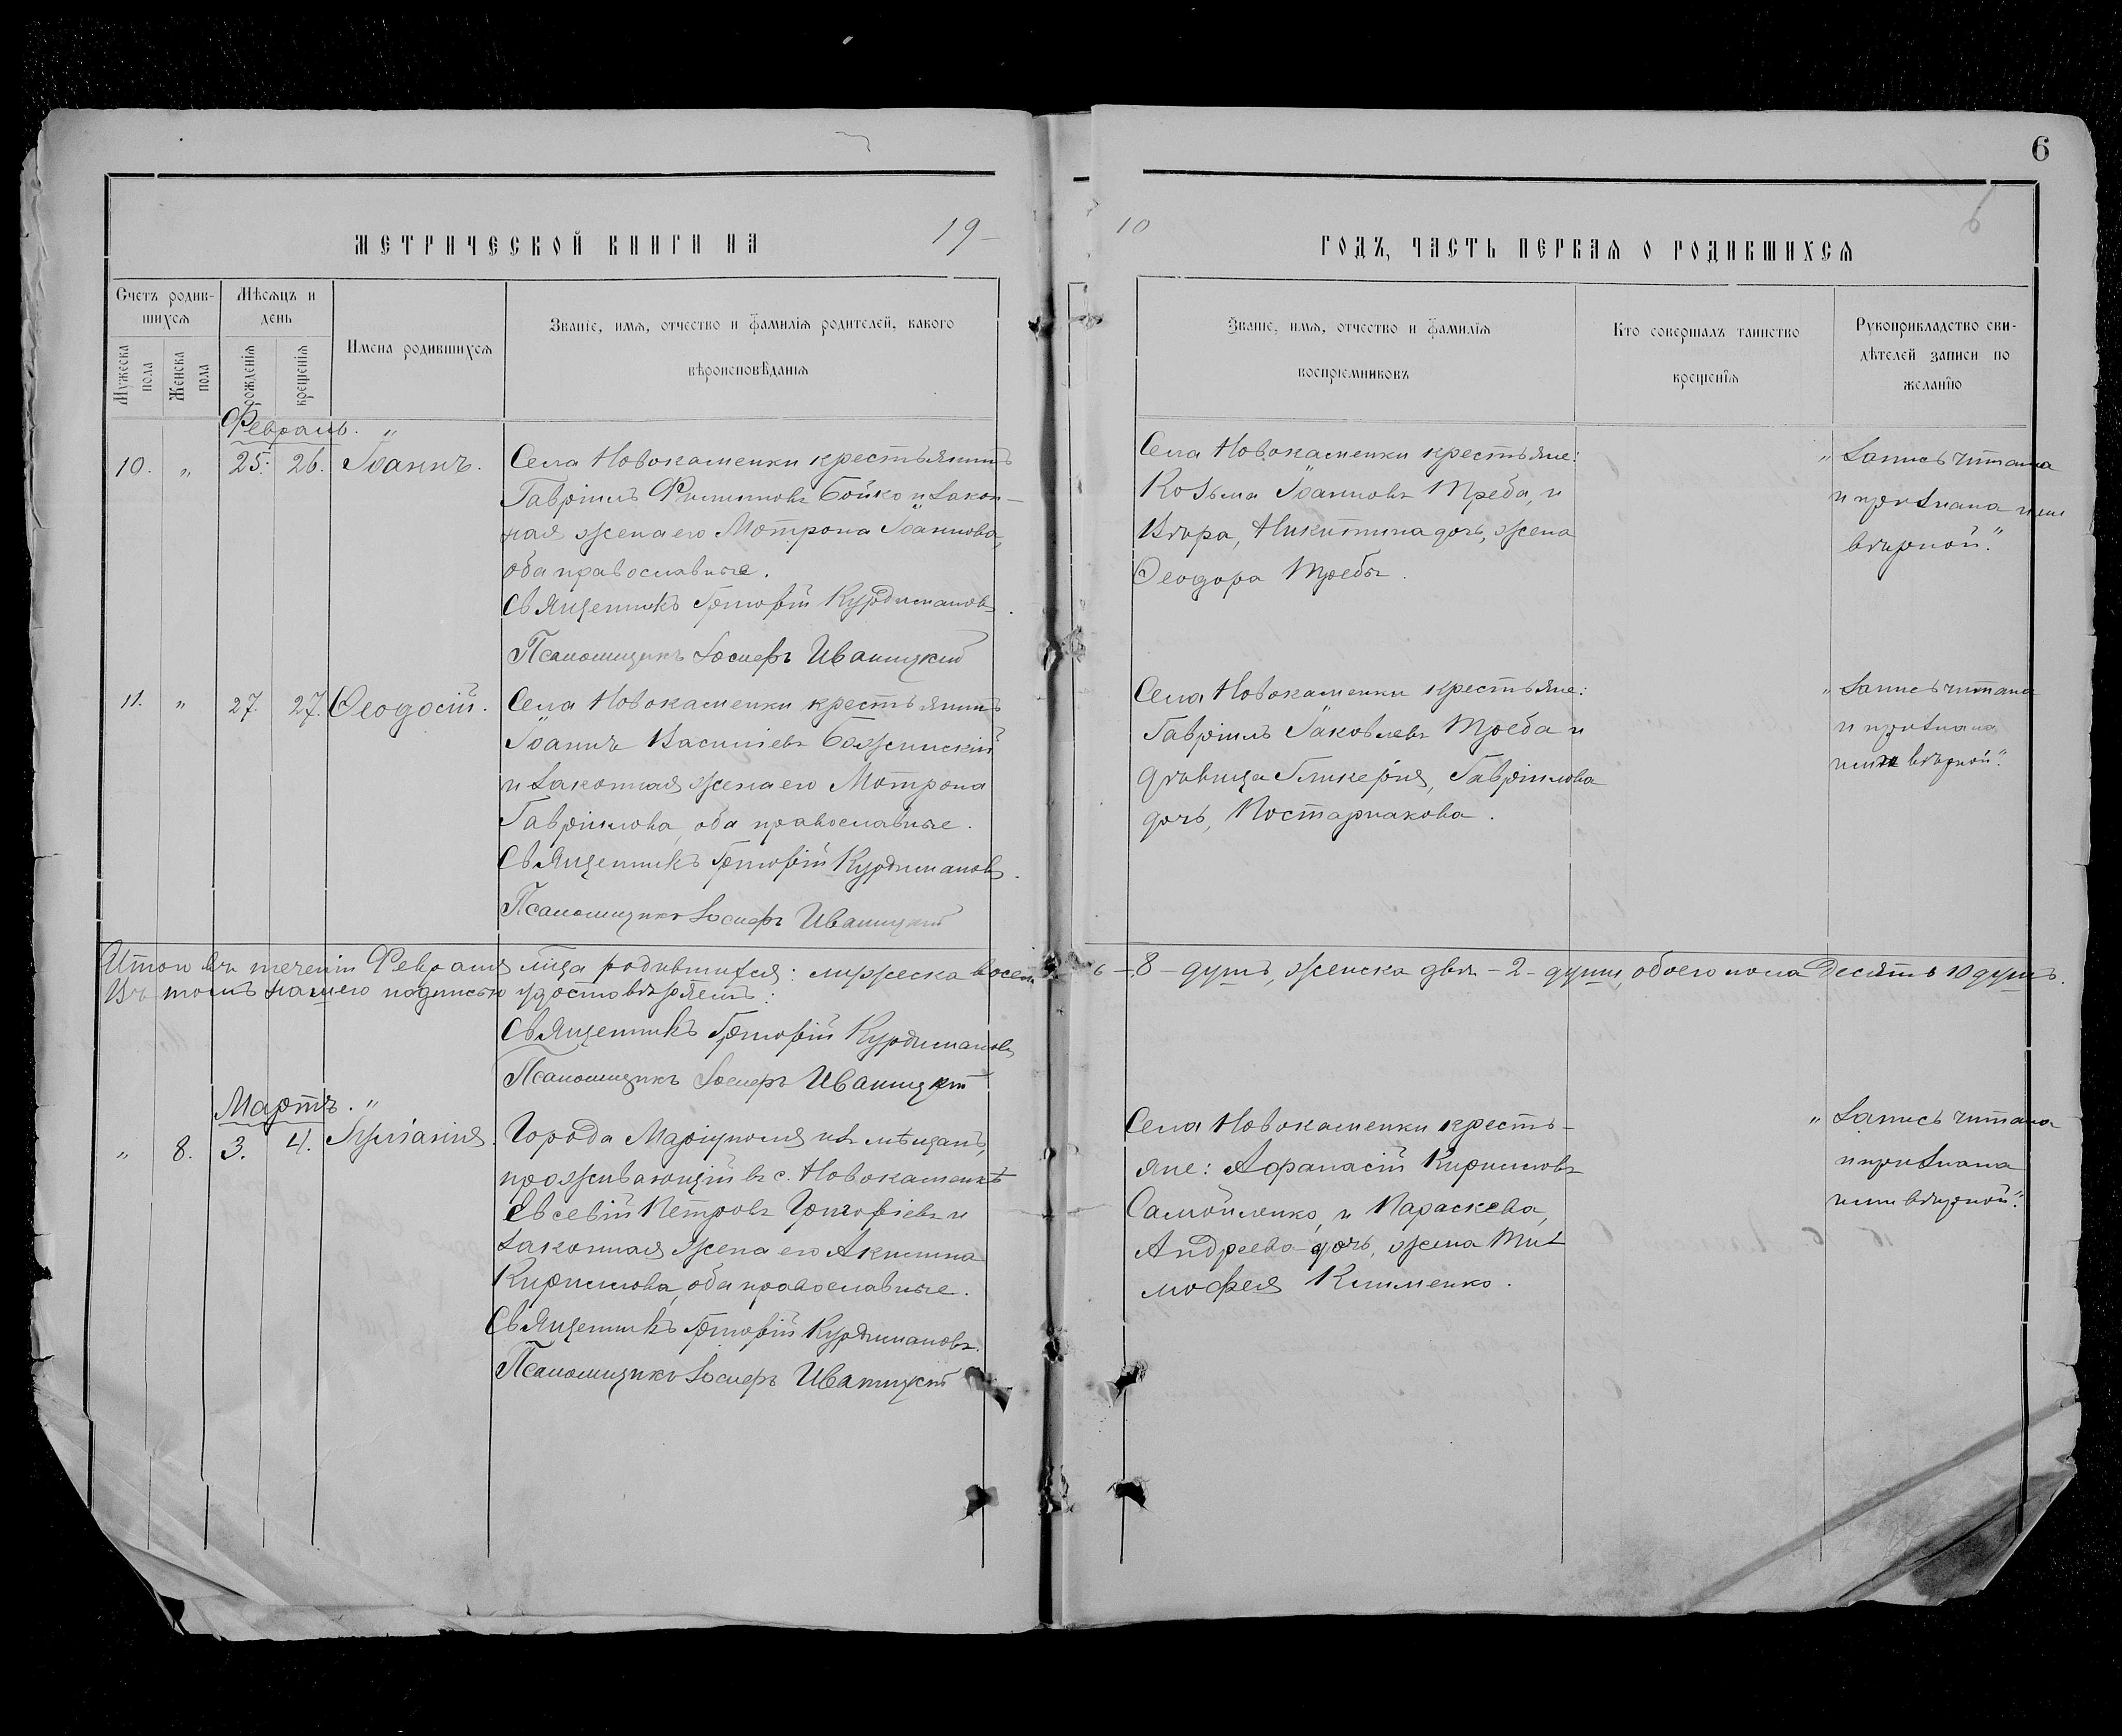 6
МЕТРИЧЕСКОЙ КНИГИ НА 19-
10 ГОДЪ, ЧАСТЬ ПЕРВАЯ О РОДИВШИХСЯ
Счетъ родив-
шихся
Мужеска
пола
Женска
пола
Мѣсяцъ и
день
рожденія
крещенія
Имена родившихся
Званіе, имя, отчество и фамилія родителей, какого
вѣроисповѣданія
Званіе, имя, отчество и фамилія
воспріемниковъ
Кто совершалъ таинство
крещенія
Рукоприкладство сви-
дѣтелей записи по
желанію
Февраль. "
10. " 25. 26. Іоаннъ.
Села Новокаменки крестьянинъ
Гавріилъ Филипповъ Бойко и закон-
ная жена его Мотрона Іоаннова,
оба православные.
Священникъ Григорій Курдимановъ.
Псаломщикъ Іосифъ Иваницкій
Села Новокаменки крестьяне:
Козьма Іоанновъ Треба, и
Вѣра, Никитина дочь, жена
Ѳеодора Требы.
" Запись читана
и признана нами
вѣрной."
11. " 27. 27. Ѳеодосій.
Села Новокаменки крестьянинъ
Іоаннъ Васильевъ Божинскій
и законная жена его Мотрона
Гавріилова, оба православные.
Священникъ Григорій Курдимановъ.
Псаломщикъ Іосифъ Иваницкій
Села Новокаменки крестьяне:
Гавріилъ Іаковлевъ Треба и
дѣвица Гликерія, Гавріилова
дочь, Костарнакова.
" Запись читана
и признана
нами вѣрной."
Итого въ теченіи Февраля мѣсяца родившихся: мужеска восемь - 8 - душъ, женска двѣ - 2 - души, обоего пола десять 10 душъ.
Въ томъ нашею подписью удостовѣряемъ:
Священникъ Григорій Курдимановъ
Псаломщикъ Іосифъ Иваницкій
Мартъ. "
" 8. 3. 4. Іуліанія.
Города Маріуполя изъ мѣщанъ,
проживающій въ с. Новокаменкѣ
Евсевій Петровъ Григорьевъ и
законная жена его Акилина
Кириллова, оба православные.
Священникъ Григорій Курдимановъ.
Псаломщикъ Іосифъ Иваницкій
Села Новокаменки кресть-
яне: Афанасій Кирилловъ
Самойленко, и Параскева,
Андреева дочь, жена Ти-
мофея Клименко.
" Запись читана
и признана
нами вѣрной."